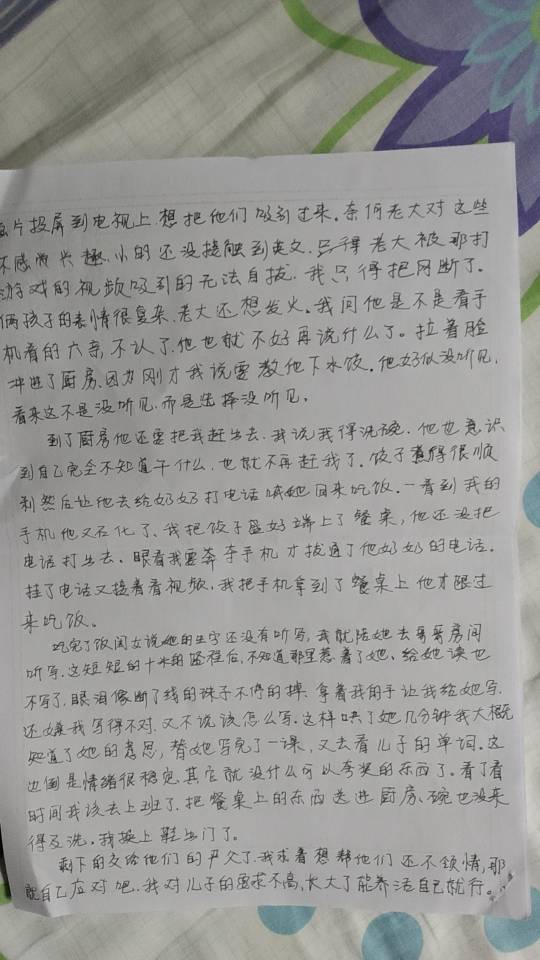 片投屏到电视上,想把他们吸引过来。奈何老大对这些
不感兴趣,小的还没接触到英文,只得老大被那打
游戏的视频吸引的无法自拔,我只得把网断了。
俩孩子的表情很复杂,老大还想发火。我问他是不是看手
机看的六亲不认了,他也就不好再说什么了。拉着脸
冲进了厨房,因为刚才我说要教他下水饺。他好似没听见,
看来这不是没听见,而是选择没听见。
到了厨房他还要把我赶出去,我说我得洗碗,他也意识
到自己完全不知道干什么,也就不再赶我了。饺子煮得很顺
利然后让他去给奶奶打电话喊她回来吃饭,一看到我的
手机他又石化了,我把饺子盛好端上了餐桌,他还没把
电话打出去,眼看我要夺手机才拔通了他奶奶的电话。
挂了电话又接着看视频,我把手机拿到了餐桌上他才跟过
来吃饭。
吃完了饭闺女说她的生字还没有听写,我就陪她去哥哥房间
听写,这短短的十米的路程后,不知道那里惹着了她,给她读也
不写了,眼泪像断了线的珠子不停的掉,拿着我的手让我给她写,
还嫌我写得不对,又不说该怎么写,这样哄了她几分钟我大概
知道了她的意思,替她写完了一课,又去看儿子的单词,这
边倒是情绪很稳定,其它就没什么可以夸奖的东西了。看了看
时间我该去上班了,把餐桌上的东西送进厨房,碗也没来
得及洗,我换上鞋出门了。
剩下的交给他们的严父了,我求着想帮他们还不领情,那
就自己应对吧,我对儿子的要求不高,长大了能养活自己就行。